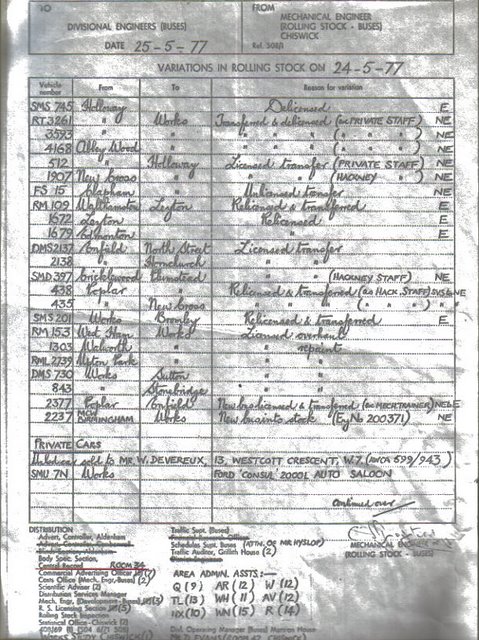 TO
DIVISIONAL ENGINEERS (BUSES)
DATE 25-5-77
FROM
MECHANICAL ENGINEER
(ROLLING STOCK - BUSES)
CHISWICK
Ref. 508/1
VARIATIONS IN ROLLING STOCK ON 24-5-77
Vehicle number From To Reason for variation
SMS 745 Holloway Delicensed E
RT 3261 " Works Transferred & delicensed (ex PRIVATE STAFF) NE
3593 " " " " ( " " ) NE
4168 Abbey Wood " " " ( " " ) NE
512 " Holloway Licensed transfer (PRIVATE STAFF) NE
1907 New Cross " " " (HACKNEY " ) NE
FS 15 Clapham " Unlicensed transfer NE
RM 109 Walthamstow Leyton Relicensed & transferred E
1672 Leyton Relicensed E
1679 Edmonton " E
DMS 2137 Enfield North Street Licensed transfer
2138 " Hornchurch " "
SMD 397 Cricklewood Plumstead " " (HACKNEY STAFF) NE
438 Poplar " Relicensed & transferred (as HACK. STAFF)
435 " New Cross " " " ( " " "
SMS 201 Works Bromley Relicensed & transferred E
RM 153 West Ham Works Licensed overhaul
1303 Walworth " " repaint
RML 2739 Upton Park " " "
DMS 730 Works Sutton " "
843 " Stonebridge " "
2377 Poplar Enfield New bus licensed & transferred (ex MECH TRAINER) NE
2237 MCW BIRMINGHAM Works New bus into stock (Eng No 200371) NE
PRIVATE CARS
sold to MR. W. DEVEREUX, 13, WESTCOTT CRESCENT, W.7. 599/943)
SMU 7N Works FORD 'CONSUL' 2000L AUTO SALOON
Continued over
MECHANICAL ENGINEER
(ROLLING STOCK - BUSES)
DISTRIBUTION
Advert. Controller, Aldenham
Body Spec. Section,
Central Record ROOM 34
Commercial Advertising Officer
Costs Office (Mech. Engr. Buses) (2)
Scientific Adviser (2)
Distribution Services Manager
Mech. Engr. (Development - Buses)
R. S. Licensing Section
Rolling Stock Inspection
Statistical Office - Chiswick (2)
Traffic Supt. (Buses)
Schedules Supt. (Buses) (ATTN. OF MR HYSLOP)
Traffic Auditor, Griffith House (2)
AREA ADMIN. ASSTS:-
Q (9) AR (12) W (12)
TL (13) WH (11) AV (12)
UX (10) WN (15) R (14)